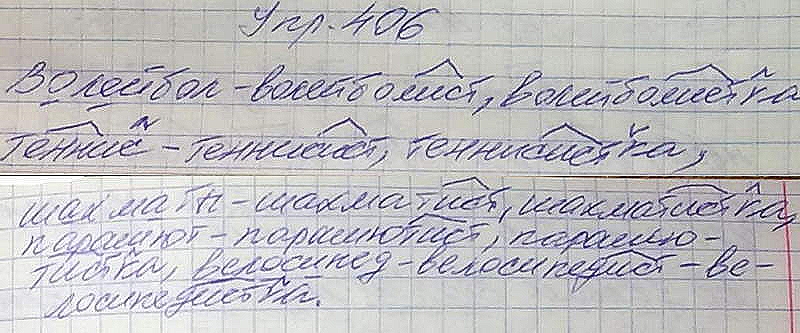 Упр. 406
Волейбол - волейболист, волейболистка
Теннис - теннисист, теннисистка,
шахматы - шахматист, шахматистка,
парашют - парашютист, парашю-
тистка, велосипед - велосипедист - ве-
лосипедистка.